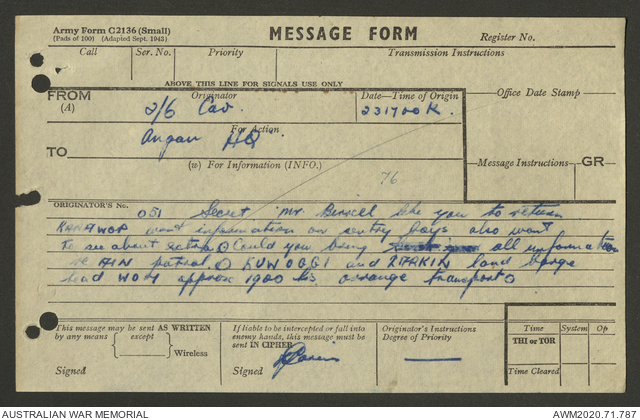 Army Form C2136 (Small)
(Pads of 100) (Adapted Sept. 1943)
MESSAGE FORM
Register No.
Call Ser. No. Priority Transmission Instructions
ABOVE THIS LINE FOR SIGNALS USE ONLY
FROM
(A)
Originator
2/6 Cav.
Date—Time of Origin
231700K.
Office Date Stamp
TO
For Action
Angau HQ.
(w) For Information (INFO.)
76
Message Instructions GR
ORIGINATOR'S No.
051 Secret. Mr. like you to return
want information on sentry boys also want
to see about Could you bring all information
re patrol. and land barge
1900 hrs arrange transport
This message may be sent AS WRITTEN
by any means except
Wireless
Signed
If liable to be intercepted or fall into
enemy hands, this message must be
sent IN CIPHER
Signed
Originator's Instructions
Degree of Priority
Time System Op
THI or TOR
Time Cleared
AUSTRALIAN WAR MEMORIAL
AWM2020.71.787